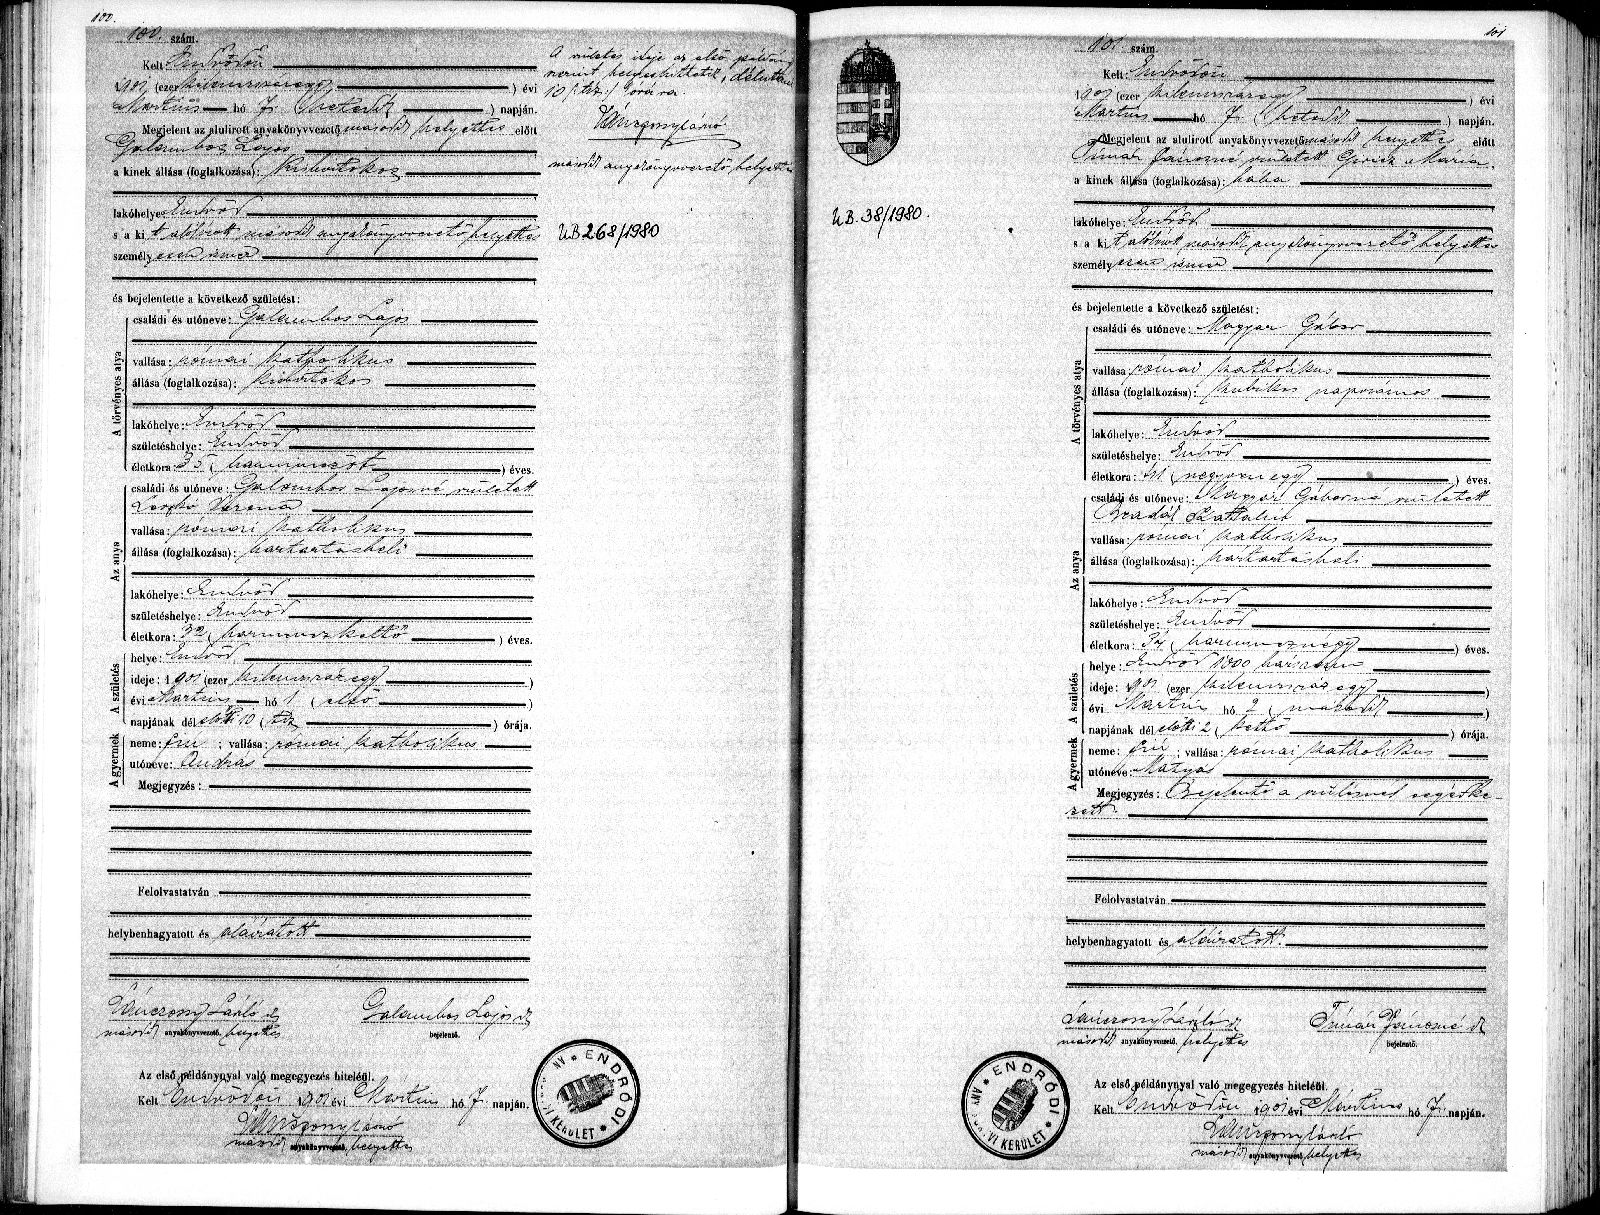 100.
100. szám.
Kelt Endrődön
1901 (ezer kilenczszázegy) évi
Martius hó 7 (hetedik) napján.
Megjelent az alulirott anyakönyvvezető második helyettes előtt
Galambos Lajos
a kinek állása (foglalkozása): kisbirtokos
lakóhelye Endrőd
s a kit alólirott második anyakönyvvezető helyettes
személyesen ismer
és bejelentette a következő születést:
A törvényes atya
családi és utóneve: Galambos Lajos
vallása: római katholikus
állása (foglalkozása): kisbirtokos
lakóhelye: Endrőd
születéshelye: Endrőd
életkora: 35 (harminczöt) éves.
Az anya
családi és utóneve: Galambos Lajosné született
vallása: római katholikus
állása (foglalkozása): háztartásbeli
lakóhelye: Endrőd
születéshelye: Endrőd
életkora: 32 (harminczkettő) éves.
A születés
helye: Endrőd
ideje: 1901 (ezer kilenczszázegy)
évi Martius hó 1 (első)
napjának délelőtti 10 (tiz) órája.
A gyermek
neme: fiú; vallása: római katholikus
utóneve: András
Megjegyzés:
Felolvastatván
helybenhagyatott és aláiratott
Lánczony László Galambos Lajos
második anyakönyvvezető helyettes bejelentő.
Az első példánynyal való megegyezés hiteléül.
Kelt Endrődön 1901 évi Mártius hó 7 napján.
második anyakönyvvezető helyettes
A születés ideje az első példány
szerint helyesbittetik, délelőtti
10 (tiz) órára.
második anyakönyvvezető helyettes
UB 268/1980
ENDRŐDI ANYAKÖNYVI KERÜLET
101
101. szám.
Kelt Endrődön
1901 (ezer kilenczszázegy) évi
Martius hó 7 (hetedik) napján.
Megjelent az alulirott anyakönyvvezető második helyettes előtt
Timár Jánosné született Mária
a kinek állása (foglalkozása): bába
lakóhelye: Endrőd
s a kit alólirott második anyakönyvvezető helyettes
személyesen ismer
és bejelentette a következő születést:
A törvényes atya
családi és utóneve: Magyar Gábor
vallása: római katholikus
állása (foglalkozása): kubikos napszámos
lakóhelye: Endrőd
születéshelye: Endrőd
életkora: 41 (negyvenegy) éves.
Az anya
családi és utóneve: Magyar Gáborné született
Katalin
vallása: római katholikus
állása (foglalkozása): háztartásbeli
lakóhelye: Endrőd
születéshelye: Endrőd
életkora: 34 (harmincznégy) éves.
A születés
helye: Endrőd 1300 házszám
ideje: 1901 (ezer kilenczszázegy)
évi Martius hó 2 (második)
napjának délelőtti 2 (kettő) órája.
A gyermek
neme: fiú; vallása: római katholikus
utóneve: Mátyás
Megjegyzés: Bejelentő a szülésnél segédke-
zett.
Felolvastatván
helybenhagyatott és aláiratott.
Lánczony László Timár Jánosné
második anyakönyvvezető helyettes bejelentő.
Az első példánynyal való megegyezés hiteléül.
Kelt Endrődön 1901 évi Mártius hó 7 napján.
második anyakönyvvezető helyettes
UB.38/1980.
ENDRŐDI ANYAKÖNYVI KERÜLET